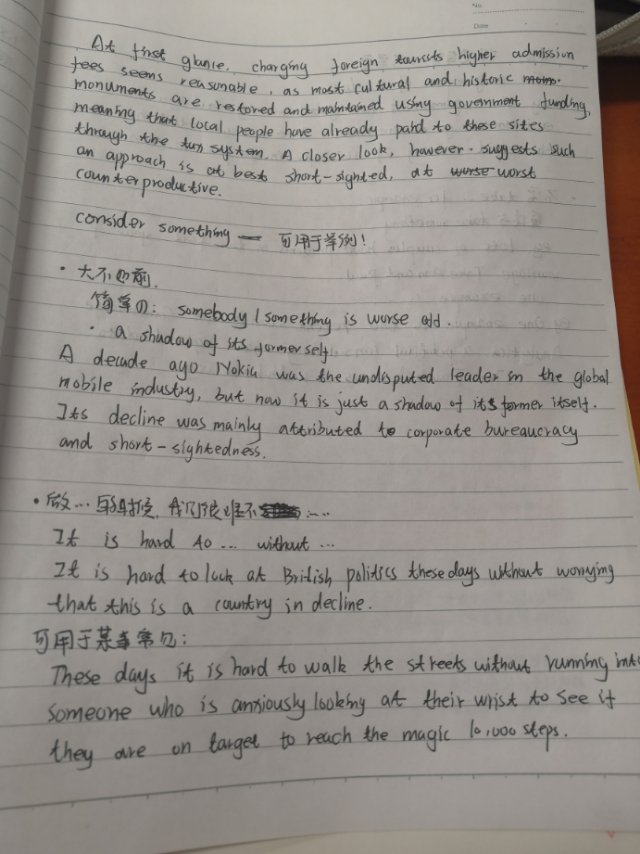 No.
Date
At first glance, charging foreign tourists higher admission
fees seems reasonable, as most cultural and historic
monuments are restored and maintained using government funding,
meaning that local people have already paid to these sites
through the tax system. A closer look, however. suggests such
an approach is at best short-sighted, at worse worst
counterproductive.
consider something — 可用于举例!
· 大不如前.
简单の: somebody / something is worse odd.
· a shadow of its former self
A decade ago Nokia was the undisputed leader in the global
mobile industry, but now it is just a shadow of its former itself.
Its decline was mainly attributed to corporate bureaucracy
and short-sightedness.
· 做…的时候, 我们很难不……
It is hard to … without …
It is hard to look at British politics these days without worrying
that this is a country in decline.
可用于某事常见:
These days it is hard to walk the streets without running into
someone who is anxiously looking at their wrist to see if
they are on target to reach the magic 10,000 steps.